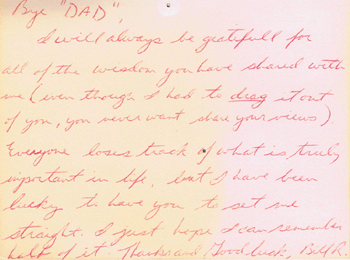 Bye "DAD",
I will always be gratefull for
all of the wisdom you have shared with
me (even though I had to drag it out
of you, you never want share your views).
Everyone loses track of what is truly
important in life, but I have been
lucky to have you to set me
straight. I just hope I can remember
half of it. Thanks and Good luck, Bill R.